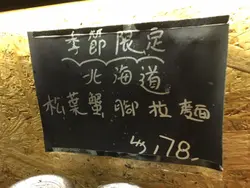 季節限定
北海道
松葉蟹腳拉麵
178